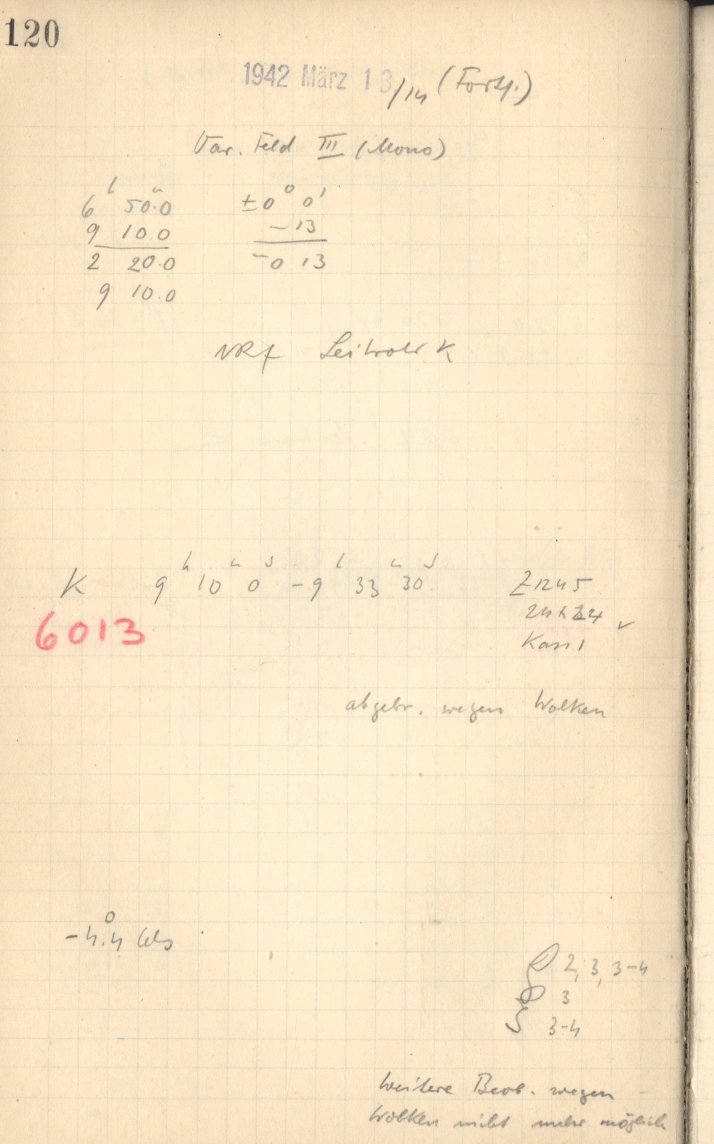 120
1942 März 13/14 (Forts.)
Var. Feld III (Mono)
6ʰ 50ᵐ.0 ±0° 0'
9 10.0 -13
2 20.0 -0 13
9 10.0
Leitrohr K
K 9ʰ 10ᵐ 0ˢ - 9ʰ 33ᵐ 30ˢ Z 1245
6013
Kass 1
abgebr. wegen Wolken
-4°.4 Cels
2, 3, 3-4
3
3-4
Weitere Beob. wegen
Wolken nicht mehr möglich